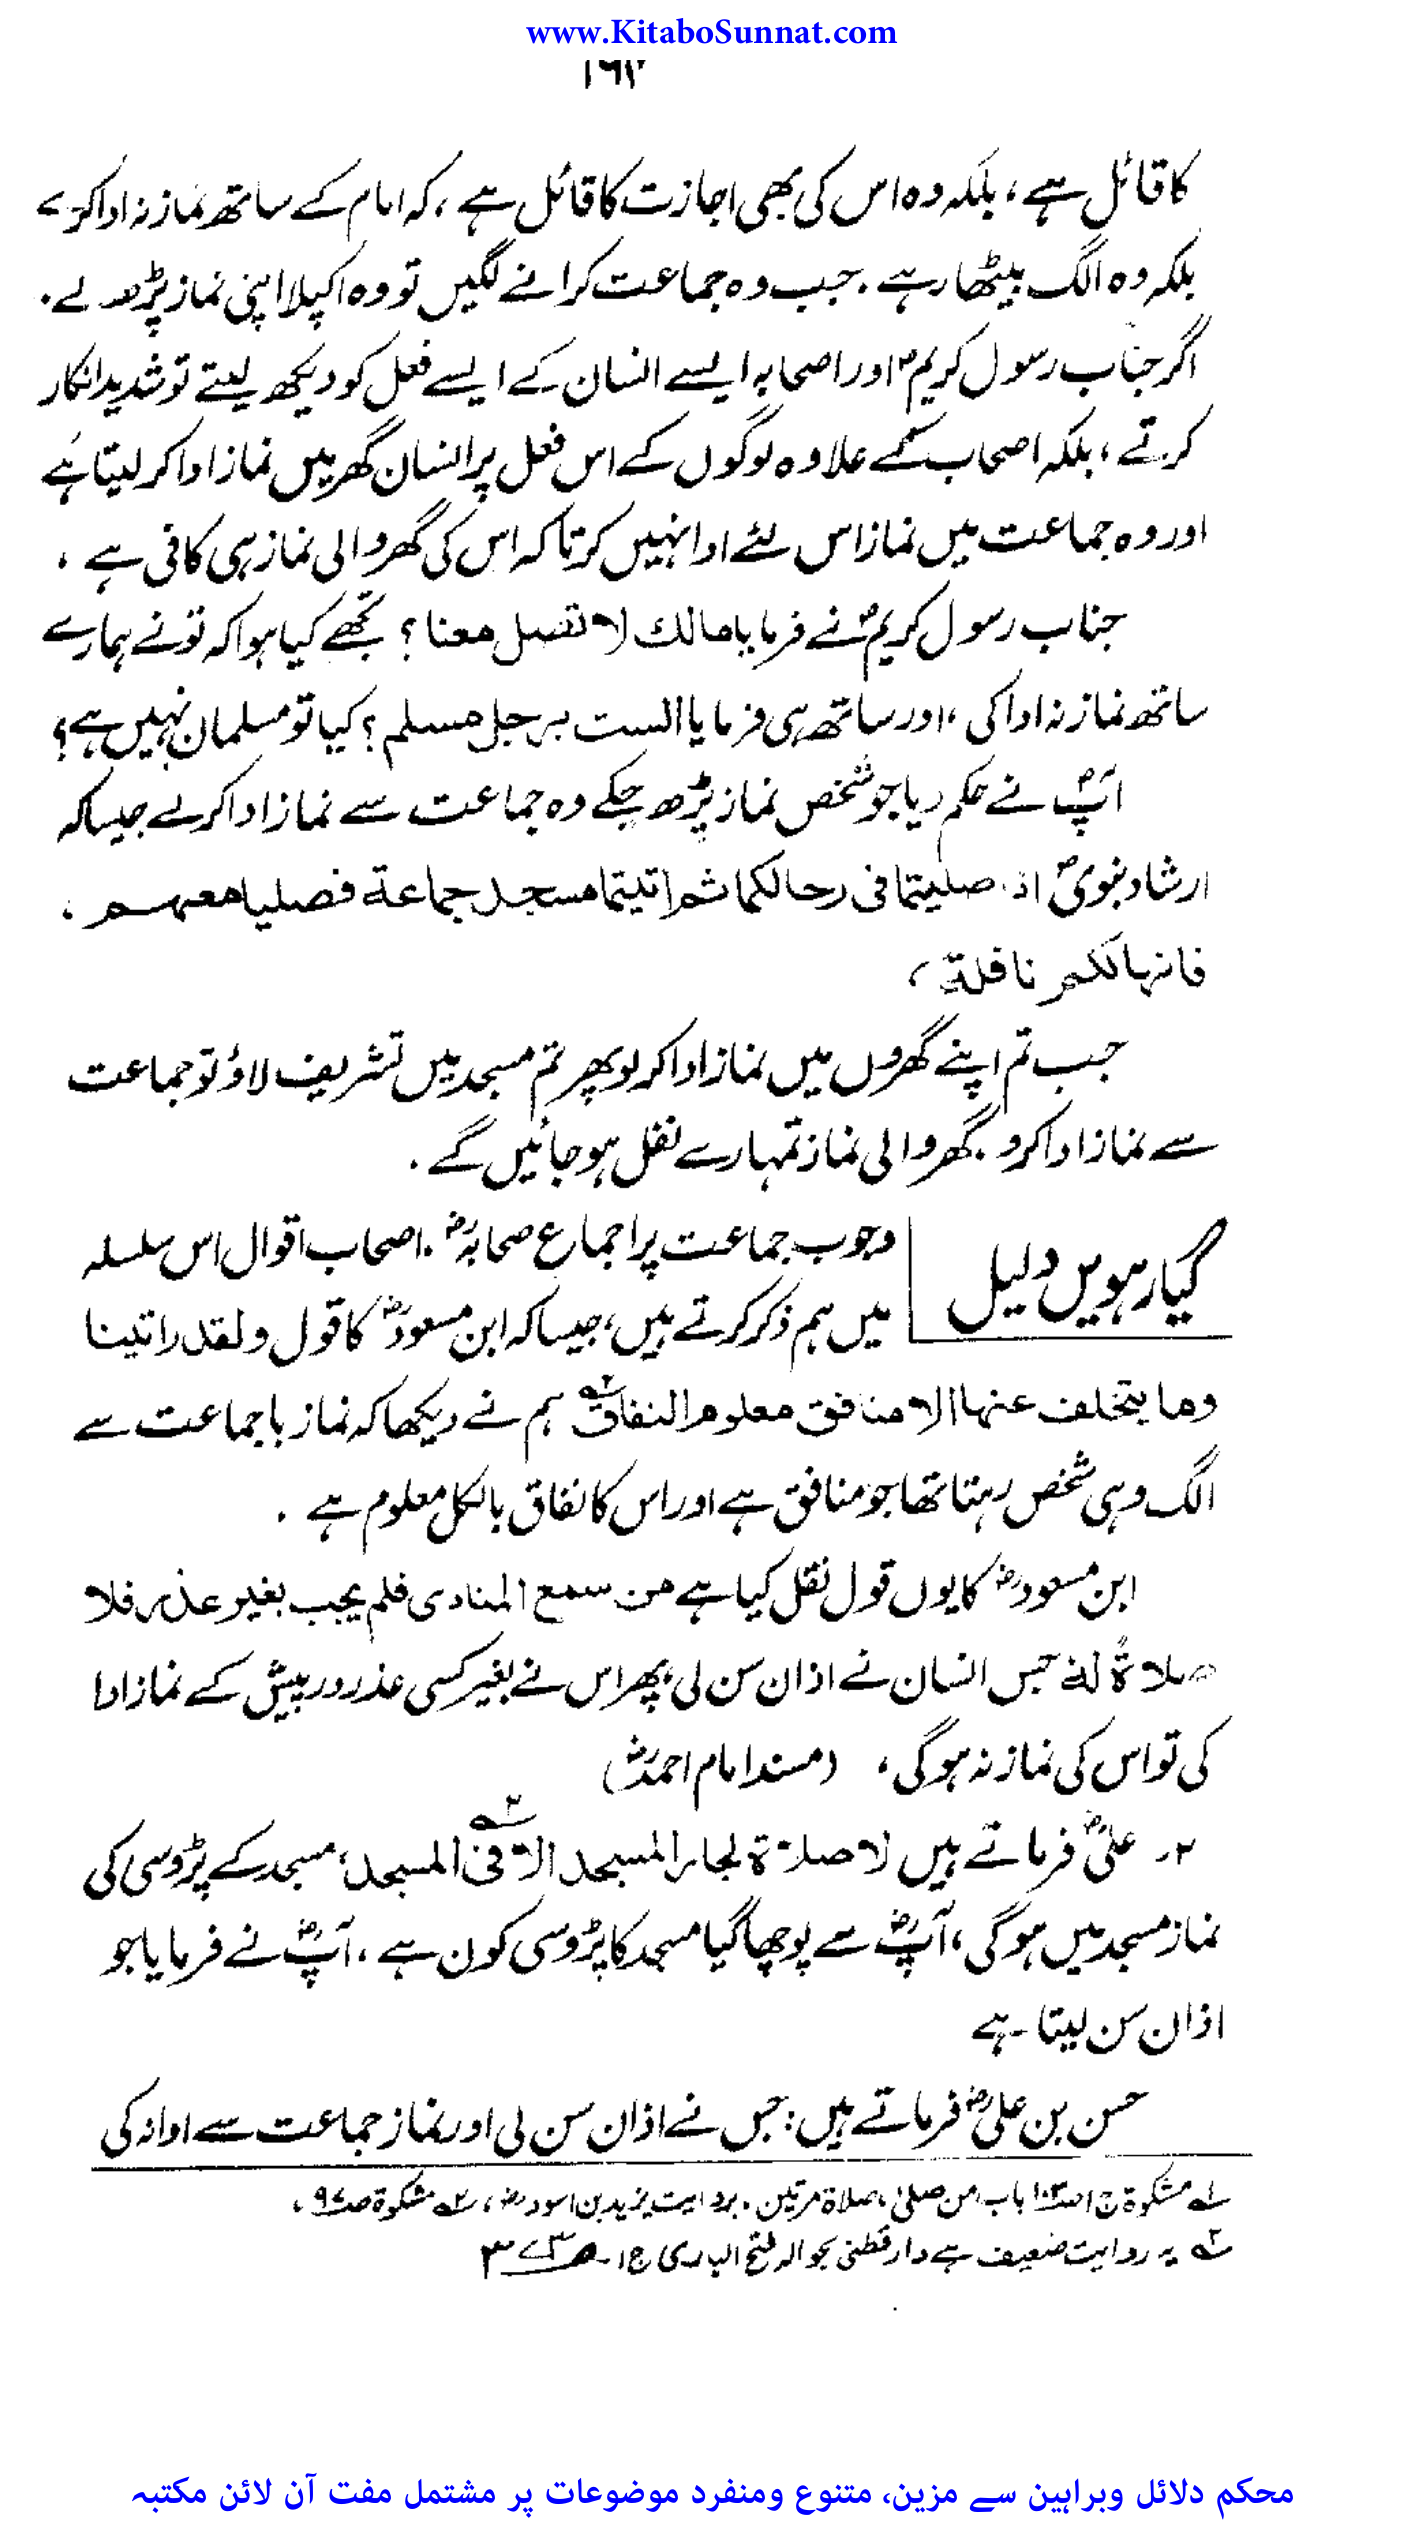 www.KitaboSunnat.com
۱۶۲
کا قائل ہے، بلکہ وہ اس کی بھی اجازت کا قائل ہے، کہ امام کے ساتھ نماز نہ ادا کرے
بلکہ وہ الگ بیٹھا رہے. جب وہ جماعت کرانے لگیں تو وہ اکیلا اپنی نماز پڑھ لے.
اگر جناب رسول کریمؐ اور اصحابہ ایسے انسان کے ایسے فعل کو دیکھ لیتے تو شدید انکار
کرتے، بلکہ اصحاب کے علاوہ لوگوں کے اس فعل پر انسان گھر میں نماز ادا کر لیتا ہے
اور وہ جماعت میں نماز اس لئے ادا نہیں کرتا کہ اس کی گھر والی نماز ہی کافی ہے،
جناب رسول کریمؐ نے فرمایا مالك لا تصل معنا؟ تجھے کیا ہوا کہ تونے ہمارے
ساتھ نماز نہ ادا کی، اور ساتھ ہی فرمایا الست برجل مسلم؟ کیا تو مسلمان نہیں ہے؟
آپؐ نے حکم دیا جو شخص نماز پڑھ چکے وہ جماعت سے نماز ادا کرلے جیسا کہ
ارشاد نبویؐ اذا صليتما فى رحالكما ثم اتيتما مسجد جماعة فصليا معهم.
فانها لكم نافلة،
جب تم اپنے گھروں میں نماز ادا کر لو پھر تم مسجد میں تشریف لاؤ تو جماعت
سے نماز ادا کرو. گھر والی نماز تمہارے نفل ہو جائیں گے.
گیارہویں دلیل
وجوب جماعت پر اجماع صحابہؓ. اصحاب اقوال اس سلسلہ
میں ہم ذکر کرتے ہیں، جیسا کہ ابن مسعودؓ کا قول ولقد راتینا
وما يتخلف عنها الا منافق معلوم النفاق ۲ ہم نے دیکھا کہ نماز باجماعت سے
الگ وہی شخص رہتا تھا جو منافق ہے اور اس کا نفاق بالکل معلوم ہے.
ابن مسعودؓ کا یوں قول نقل کیا ہے من سمع المنادى فلم يجب بغير عذر فلا
صلاة له جس انسان نے اذان سن لی، پھر اس نے بغیر کسی عذر در پیش کے نماز ادا
کی تو اس کی نماز نہ ہوگی، (مسند امام احمدؒ)
۲۔ علیؓ فرماتے ہیں لا صلاة لجار المسجد الا فى المسجد، ۳ مسجد کے پڑوسی کی
نماز مسجد میں ہوگی، آپؓ سے پوچھا گیا مسجد کا پڑوسی کون ہے، آپؓ نے فرمایا جو
اذان سن لیتا ہے
حسن بن علیؓ فرماتے ہیں: جس نے اذان سن لی اور نماز جماعت سے ادا نہ کی
۱ مشکوۃ ج ۱ ص ۱۰۳ باب من صلی صلاة مرتین. بروایت یزید بن اسودؓ، ۲ مشکوۃ ص ۹۷،
۳ یہ روایت ضعیف ہے دارقطنی بحوالہ فتح الباری ج ۱۔
محکم دلائل وبراہین سے مزین، متنوع ومنفرد موضوعات پر مشتمل مفت آن لائن مکتبہ